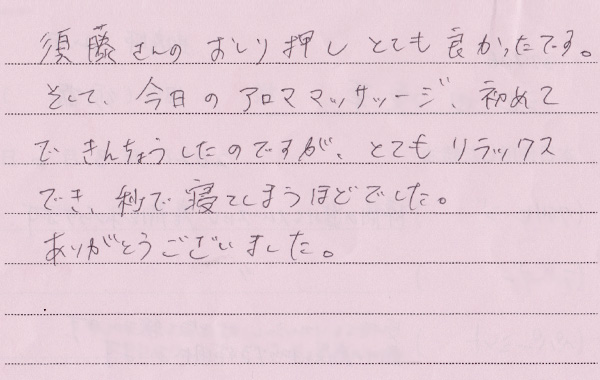 須藤さんの おしり押し とても 良かったです。
そして、今日の アロママッサージ、初めて
で きんちょうしたのですが、とても リラックス
でき、秒で 寝てしまうほどでした。
ありがとうございました。